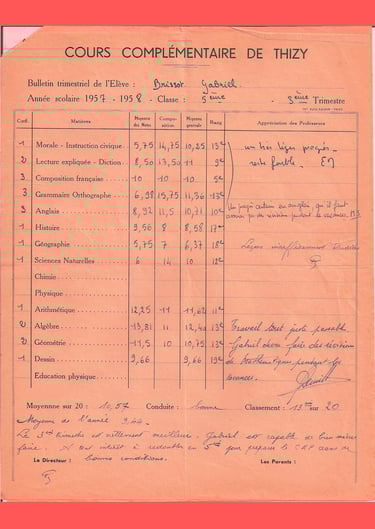 COURS COMPLÉMENTAIRE DE THIZY
Bulletin trimestriel de l'Elève : Brissot Gabriel
Année scolaire 1957 - 1958 - Classe : 5ème 3ème Trimestre
Coef. Matières Moyenne des Notes Composition Moyenne générale Rang Appréciation des Professeurs
1 Morale - Instruction civique 5,75 14,75 10,25 13e un très léger progrès
2 Lecture expliquée - Diction 8,50 13,50 11 9e reste faible.
3 Composition française 10 10 10 5e
3 Grammaire Orthographe 6,98 15,75 11,36 13e
3 Anglais 8,92 11,5 10,71 10e
1 Histoire 9,56 8 8,58 17e
1 Géographie 5,75 7 6,37 18e Leçons insuffisamment étudiées
1 Sciences Naturelles 6 14 10 12e
Chimie
Physique
1 Arithmétique 12,25 11 11,62 11e
2 Algèbre 13,81 11 12,40 13e Travail tout juste passable
2 Géométrie 11,5 10 10,75 13e Gabriel devra faire des révisions
1 Dessin 9,66 9,66 19e de Mathématiques pendant les
Education physique vacances.
Moyenne sur 20 : 10,57 Conduite : bonne Classement : 13e sur 20
Moyenne de l'année 9,66
Le 3me trimestre est nettement meilleur. Gabriel est capable de bien mieux
faire. A tout intérêt à redoubler en 5me pour préparer le CAP dans de
Le Directeur : bonnes conditions. Les Parents :